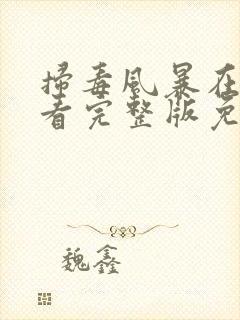 扫毒风暴在
看完整版免
魏鑫